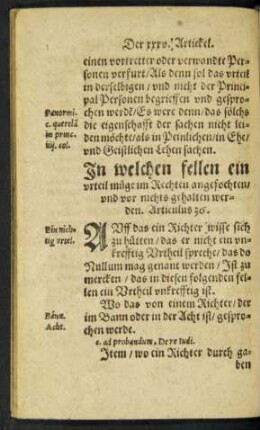 Der xxxv. Artickel.
einen vortretter oder verwandte Per-
sonen verfurt/Als denn sol das vrteil
in derselbigen/vnd nicht der Princi-
pal Personen begrieffen vnd gespro-
chen werdē/Es were denn/das solchs
die eigenschafft der sachen nicht lei-
den möchte/als in Peinlichen/in Ehe/
vnd Geistlichen Lehen sachen.
Panormi.
c. querelā
in princ.
iiij. col.
In welchen fellen ein
vrteil müge im Rechten angefochten/
vnd vor nichts gehalten wer-
den. Articulus 36.
Ein nich-
tig vrtel.
AVff das ein Richter wisse sich
zu hütten/das er nicht ein vn-
krefftig Vrtheil spreche/das do
Nullum mag genant werden/Ist zu
mercken/das in diesen folgenden fel-
len ein Vrtheil vnkrefftig ist.
Wo das von einem Richter/der
im Bann oder in der Acht ist/gespro-
chen werde.
Bann.
Acht.
c. ad probandum, De re iudi.
Item/wo ein Richter durch ga-
ben